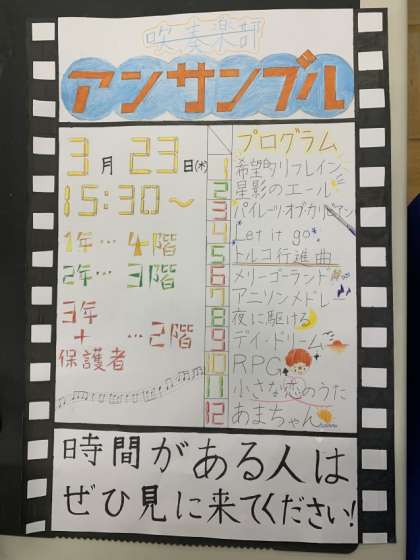 吹奏楽部
アンサンブル
3月23日(木)
15:30～
1年…4階
2年…3階
3年
+ …2階
保護者
プログラム
1 希望のリフレイン
2 星影のエール
3 パイレーツオブカリビアン
4 Let it go
5 トルコ行進曲
6 メリーゴーランド
7 アニソンメドレー
8 夜に駆ける
9 デイ・ドリーム
10 RPG
11 小さな恋のうた
12 あまちゃん
時間がある人は
ぜひ見に来てください!